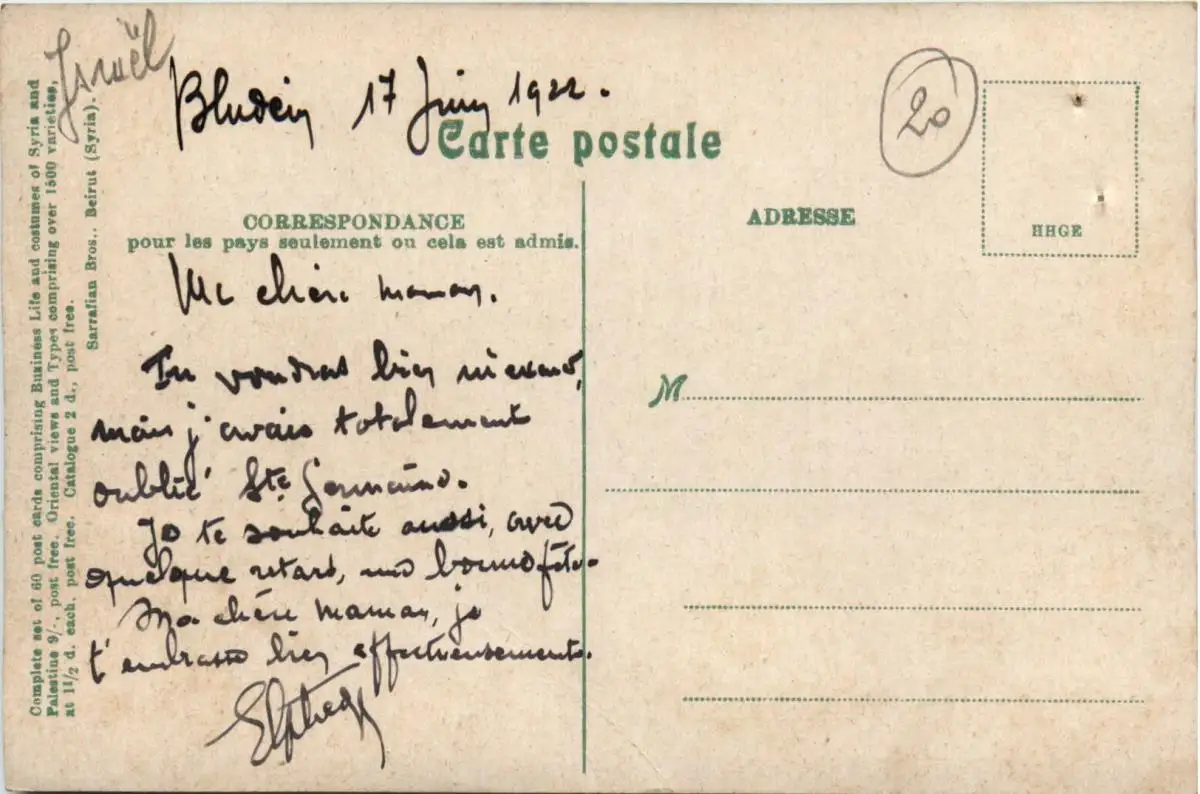 Israël
Bludein 17 Juin 1922.
20
Carte postale
CORRESPONDANCE
pour les pays seulement ou cela est admis.
ADRESSE
HHGE
Ma chère maman.
Tu voudras bien m'excuser,
mais j'avais totalement
oublié Ste Germaine.
Je te souhaite aussi, avec
quelque retard, une bonne fête.
Ma chère maman, je
t'embrasse bien affectueusement.
M
Complete set of 60 post cards comprising Business Life and costumes of Syria and
Palestine 9/-, post free. Oriental views and Types comprising over 1500 varieties,
at 1 1/2 d. each, post free. Catalogue 2 d., post free.
Sarrafian Bros., Beirut (Syria).